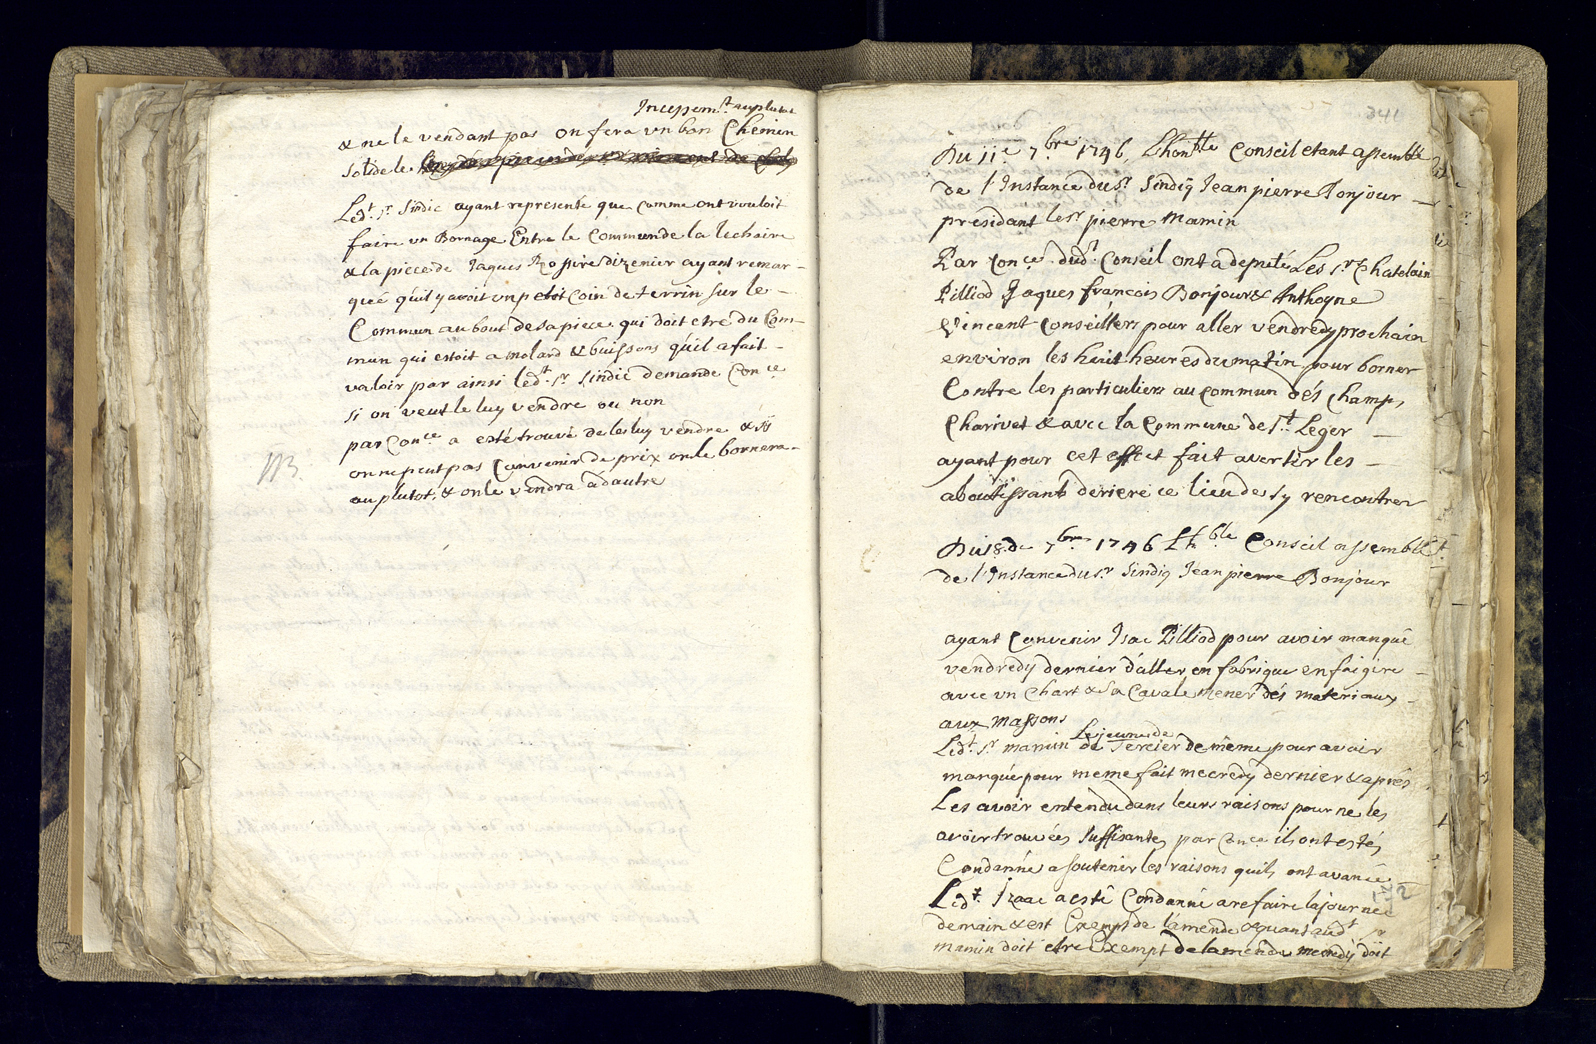 Incessem.t au plutot
& ne le vendant pas on fera un bon Chemin
solide le
Led.t s.r Sindic ayant representé que comme ont vouloit
faire un Bornage Entre le Commun de la lechaire
& la piece de Jaques dizenier ayant remar-
queé qu'il y avoit un petit Coin de terrin sur le -
Commun au bout de sa piece qui doit etre du Com-
mun qui estoit a molard & buissons qu'il a fait -
valoir par ainsi led.t s.r Sindic demande Con.ce
si on veut le luy vendre ou non
par Con.ce a esté trouvé de le luy vendre & si
on ne peut pas Convenir de prix on le bornera -
au plutot, & on le vendra a d'autre
NB.
341
Du 11.e 7.bre 1746 Lhon.ble Conseil etant assemblé
de l'Instance du s.r Sindiq Jean pierre Bonjour -
presidant le s.r pierre Mamin
Par Con.ce dud.t Conseil ont a deputé Les s.rs Chatelain
Pilliod Jaques francois Bonjour & Anthoyne
Vincent Conseillers pour aller vendredy prochain
environ les huit heures du matin pour borner
Contre les particuliers au commun dés Champs
Charivet & avec la Commune de S.t Leger -
ayant pour cet effect fait avertir les -
aboutissants deriere ce lieu de s'y rencontrer
Du 18.e de 7.bre 1746 Lh.ble Conseil assemblé
de l'Instance du s.r Sindiq Jean pierre Bonjour
ayant Convenir Isac Pilliod pour avoir manqué
vendredy dernier d'aller en fabrique en faigire -
avec un Chart & sa Cavale mener dés materiaux -
aux massons
Le jeune de
Led.t s.r mamin de Tercier de même pour avoir
manqué pour meme fait mecredy dernier & aprés
Les avoir entendu dans leurs raisons pour ne les
avoir trouvées suffisantes par Con.ce ils ont estés
Condanné a soutenir les raisons quils ont avancé
Led.t Izaac a esté Condanné a refaire la journeé
demain & est Exempt de l'amende & quant aud.t s.r
mamin doit etre Exempt de lamende mecredy doit